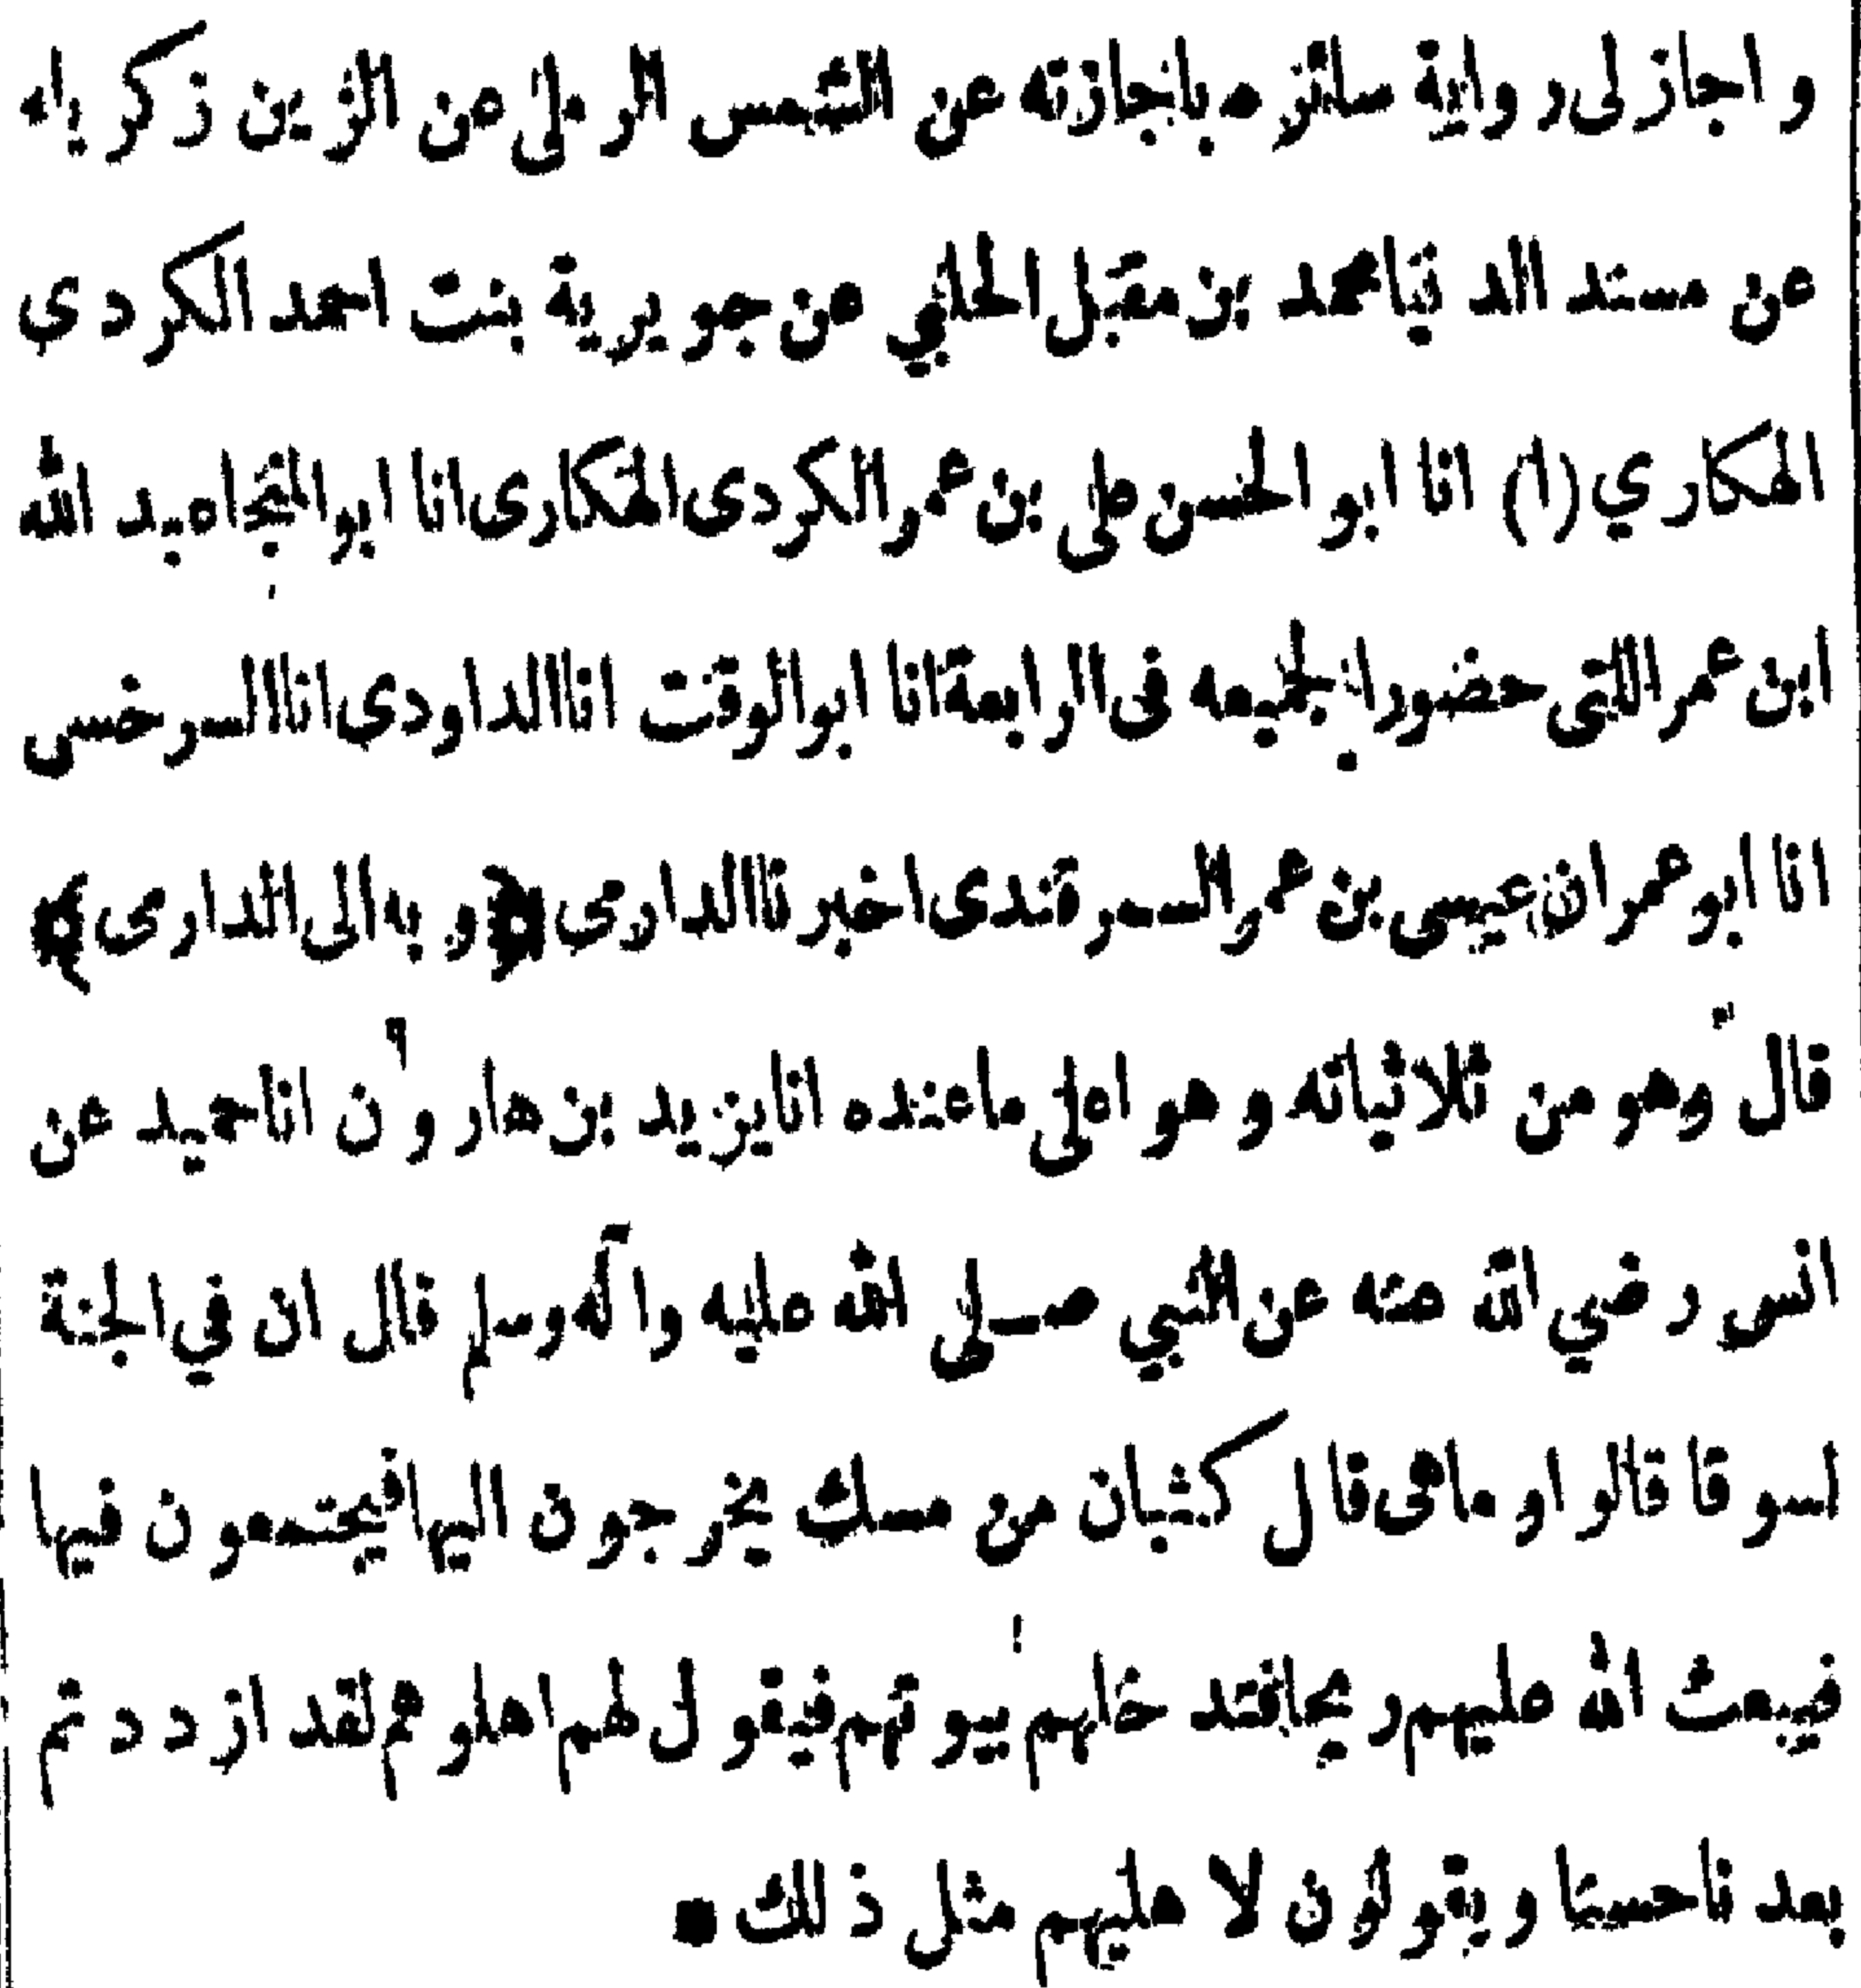 و اجاز لى رواية سائره باجازته عن الشمس الرملى عن الزين زكريا ء
عن مسند الدنيا محمد بن مقبل الحلبي عن جويرية بنت احمد الكردي
الهكاري (١) انا ابو الحسن على بن عمر الكردى الهكارى انا ابو المنجا عبد الله
ابن عمر اللتى حضورا لجميعه فى الرابعة انا ابو الوقت انا الداودى انا السرخسى
انا ابو عمران عيسى بن عمر السمرقندى اخبرنا الدارمى ﴿و به الى الدارمى﴾
قال وهو من ثلاثياته و هو اعلى ما عنده انا يزيد بن هارون انا حميد عن
انس رضي الله عنه عن النبي صلى الله عليه وآله وسلم قال ان في الجنة
لسوقا قالوا وما هى قال كثبان من مسك يخرجون اليها فيجتمعون فيها
فيبعث الله عليهم ريحا فتدخلهم بيوتهم فيقول لهم اهلوهم لقد ازددتم
بعدنا حسنا و يقولون لاهليهم مثل ذلك ■